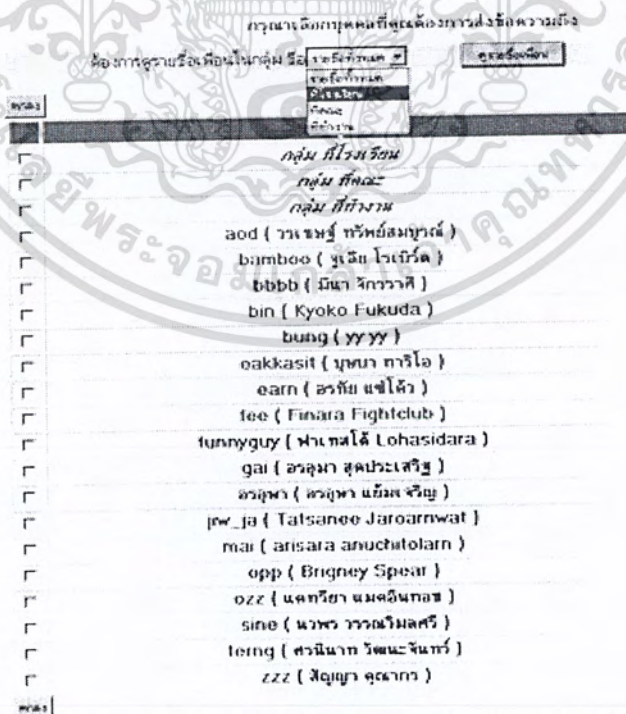 กรุณาเลือกบุคคลที่คุณต้องการส่งข้อความถึง
ต้องการดูรายชื่อเพื่อนในกลุ่ม ชื่อ รายชื่อทั้งหมด ดูรายชื่อเพื่อน
รายชื่อทั้งหมด
ที่โรงเรียน
ที่คณะ
ที่ทำงาน
ตกลง
กลุ่ม ที่โรงเรียน
กลุ่ม ที่คณะ
กลุ่ม ที่ทำงาน
aod ( วรเชษฐ์ ทรัพย์สมบูรณ์ )
bamboo ( จูเลีย โรเบิร์ต )
bbbb ( มีนา จักรวาศิ )
bin ( Kyoko Fukuda )
bung ( yy yy )
eakkasit ( บุษบา ทาริโอ )
earn ( อรทัย แซ่โค้ว )
fee ( Finara Fightclub )
funnyguy ( ฟาเทสโต้ Lohasidara )
gai ( อรอุมา สุดประเสริฐ )
อรอุพา ( อรอุพา แย้มเจริญ )
jew_ja ( Tatsanee Jaroarnwat )
mai ( arisara anuchitolarn )
opp ( Brigney Spear )
ozz ( แคทรียา แมคอินทอช )
sine ( นวพร วรรณวิมลศรี )
terng ( ศรนินาท วัฒนะจันทร์ )
zzz ( สัญญา คุณากร )
ตกลง
พระจอมเกล้าเจ้าคุณทหาร